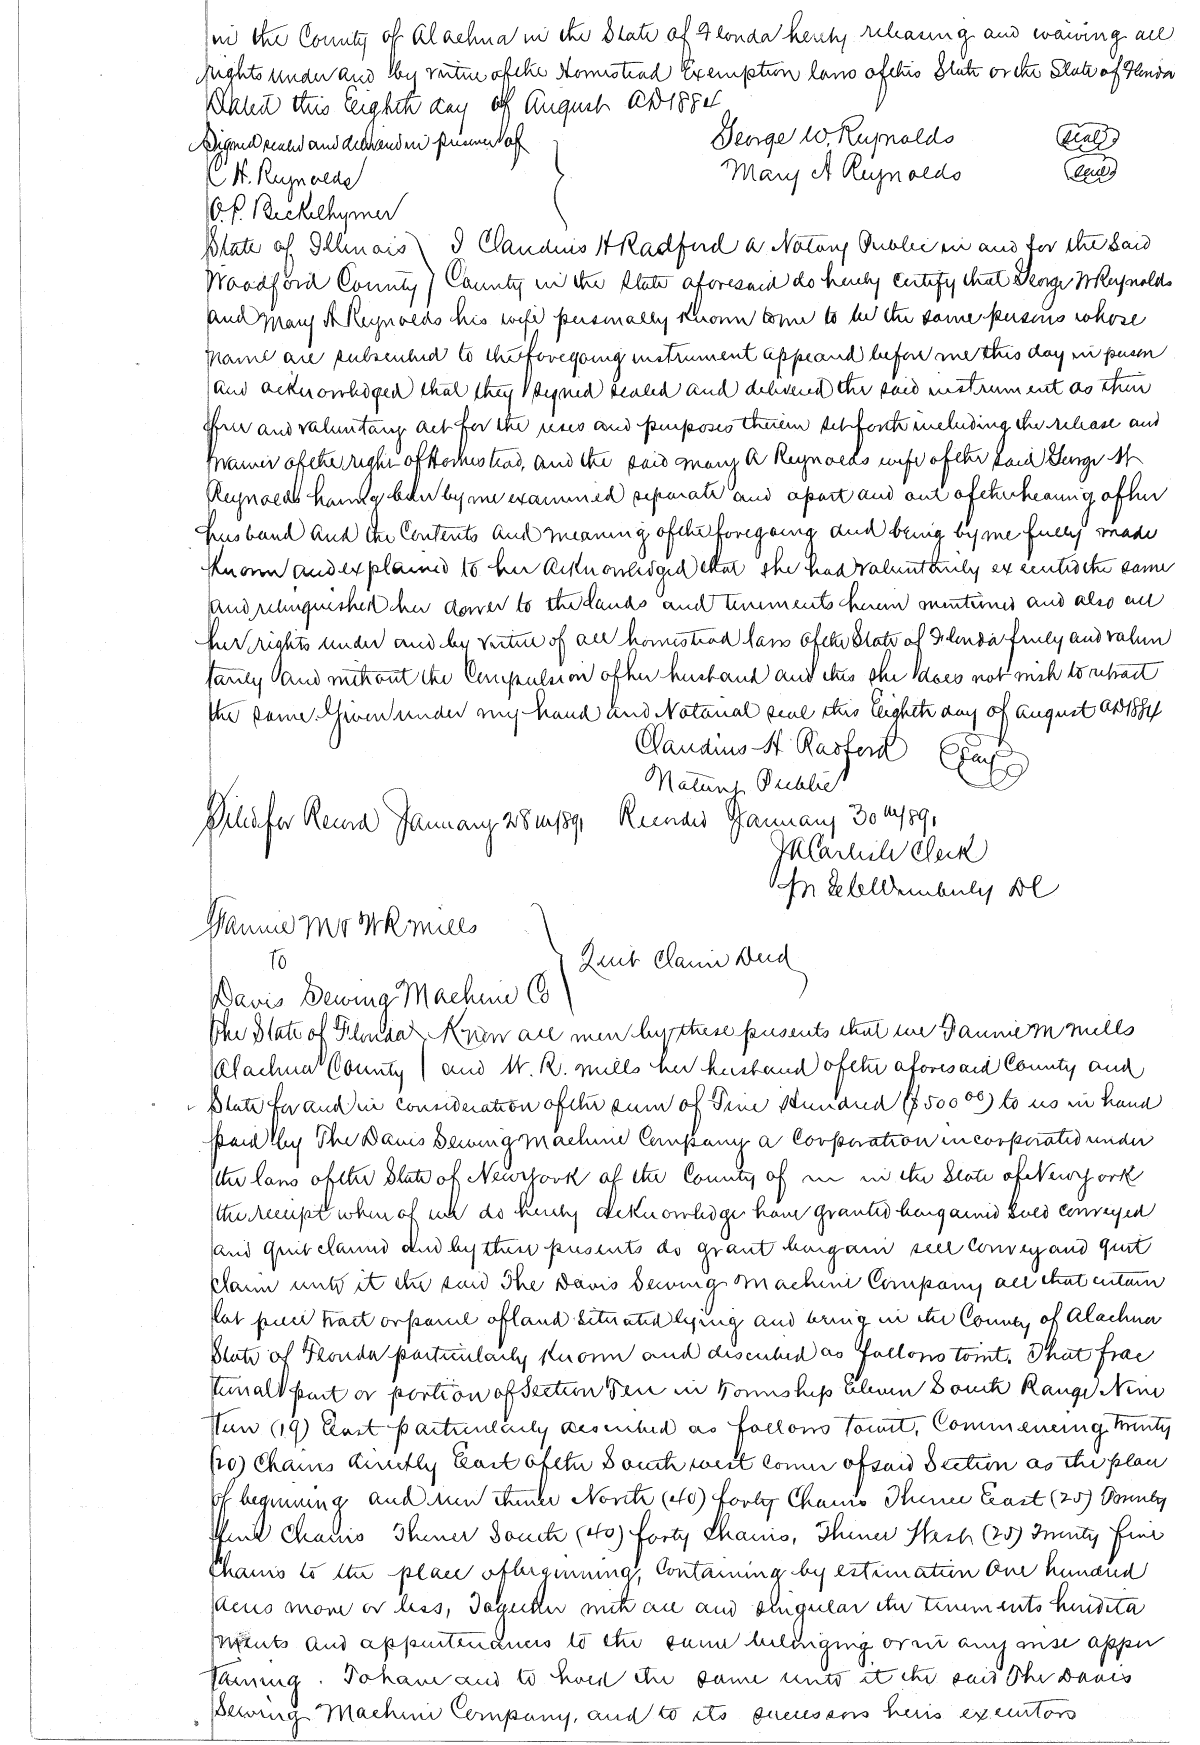 in the County of Alachua in the State of Florida hereby releasing and waiving all
rights under and by virtue of the Homestead Exemption laws of this State or the State of Florida
Dated this Eighth day of August AD 1884
Signed sealed and delivered in presence of
George W. Reynolds (Seal)
C H. Reynolds
Mary A Reynolds (Seal)
O. P. Beckelhymer
State of Illinois ) I Claudius H Radford a Notary Public in and for the Said
Woodford County ) County in the State aforesaid do hereby certify that George W Reynolds
and Mary A Reynolds his wife personally Known to me to be the same persons whose
name are subscribed to the foregoing instrument appeared before me this day in person
and acknowledged that they signed sealed and delivered the said instrument as their
free and voluntary act for the uses and purposes therein set forth including the release and
waiver of the right of Homestead, and the said Mary A Reynolds wife of the said George W
Reynolds having been by me examined separate and apart and out of the hearing of her
husband and the Contents and meaning of the foregoing and being by me fully made
Known and explained to her acknowledged that she had voluntarily executed the same
and relinquished her dower to the lands and tenements herein mentioned and also all
her rights under and by virtue of all homestead laws of the State of Florida freely and volun
tarily and without the Compulsion of her husband and this she does not wish to retract
the same. Given under my hand and Notarial seal this Eighth day of August AD 1884
Claudius H Radford (Seal)
Notary Public
Filed for Record January 28th 1891 Recorded January 30th 1891
J A Carlisle Clerk
DC
Fannie M & W R Mills
To
Quit Claim Deed
Davis Sewing Machine Co
The State of Florida ) Know all men by these presents that we Fannie M Mills
Alachua County ) and W. R. Mills her husband of the aforesaid County and
State for and in consideration of the sum of Five Hundred ($500 00) to us in hand
paid by The Davis Sewing Machine Company a Corporation incorporated under
the laws of the State of New York of the County of in in the State of New York
the receipt where of we do hereby acknowledge have granted bargained sold conveyed
and quit claimed and by these presents do grant bargain sell convey and quit
claim unto it the said The Davis Sewing Machine Company all that certain
lot piece tract or parcel of land situated lying and being in the County of Alachua
State of Florida particularly Known and described as follows towit. That frac
tional part or portion of Section Ten in Township Eleven South Range Nine
teen (19) East particularly described as follows towit, Commencing twenty
(20) Chains directly East of the South west corner of said Section as the place
of beginning and run thence North (40) forty Chains Thence East (25) Twenty
five Chains Thence South (40) forty Chains, Thence West (25) Twenty five
Chains to the place of beginning, Containing by estimation One hundred
acres more or less, Together with all and singular the tenements heredita
ments and appurtenances to the same belonging or in any wise apper
taining. To have and to hold the same unto it the said The Davis
Sewing Machine Company, and to its successors heirs executors